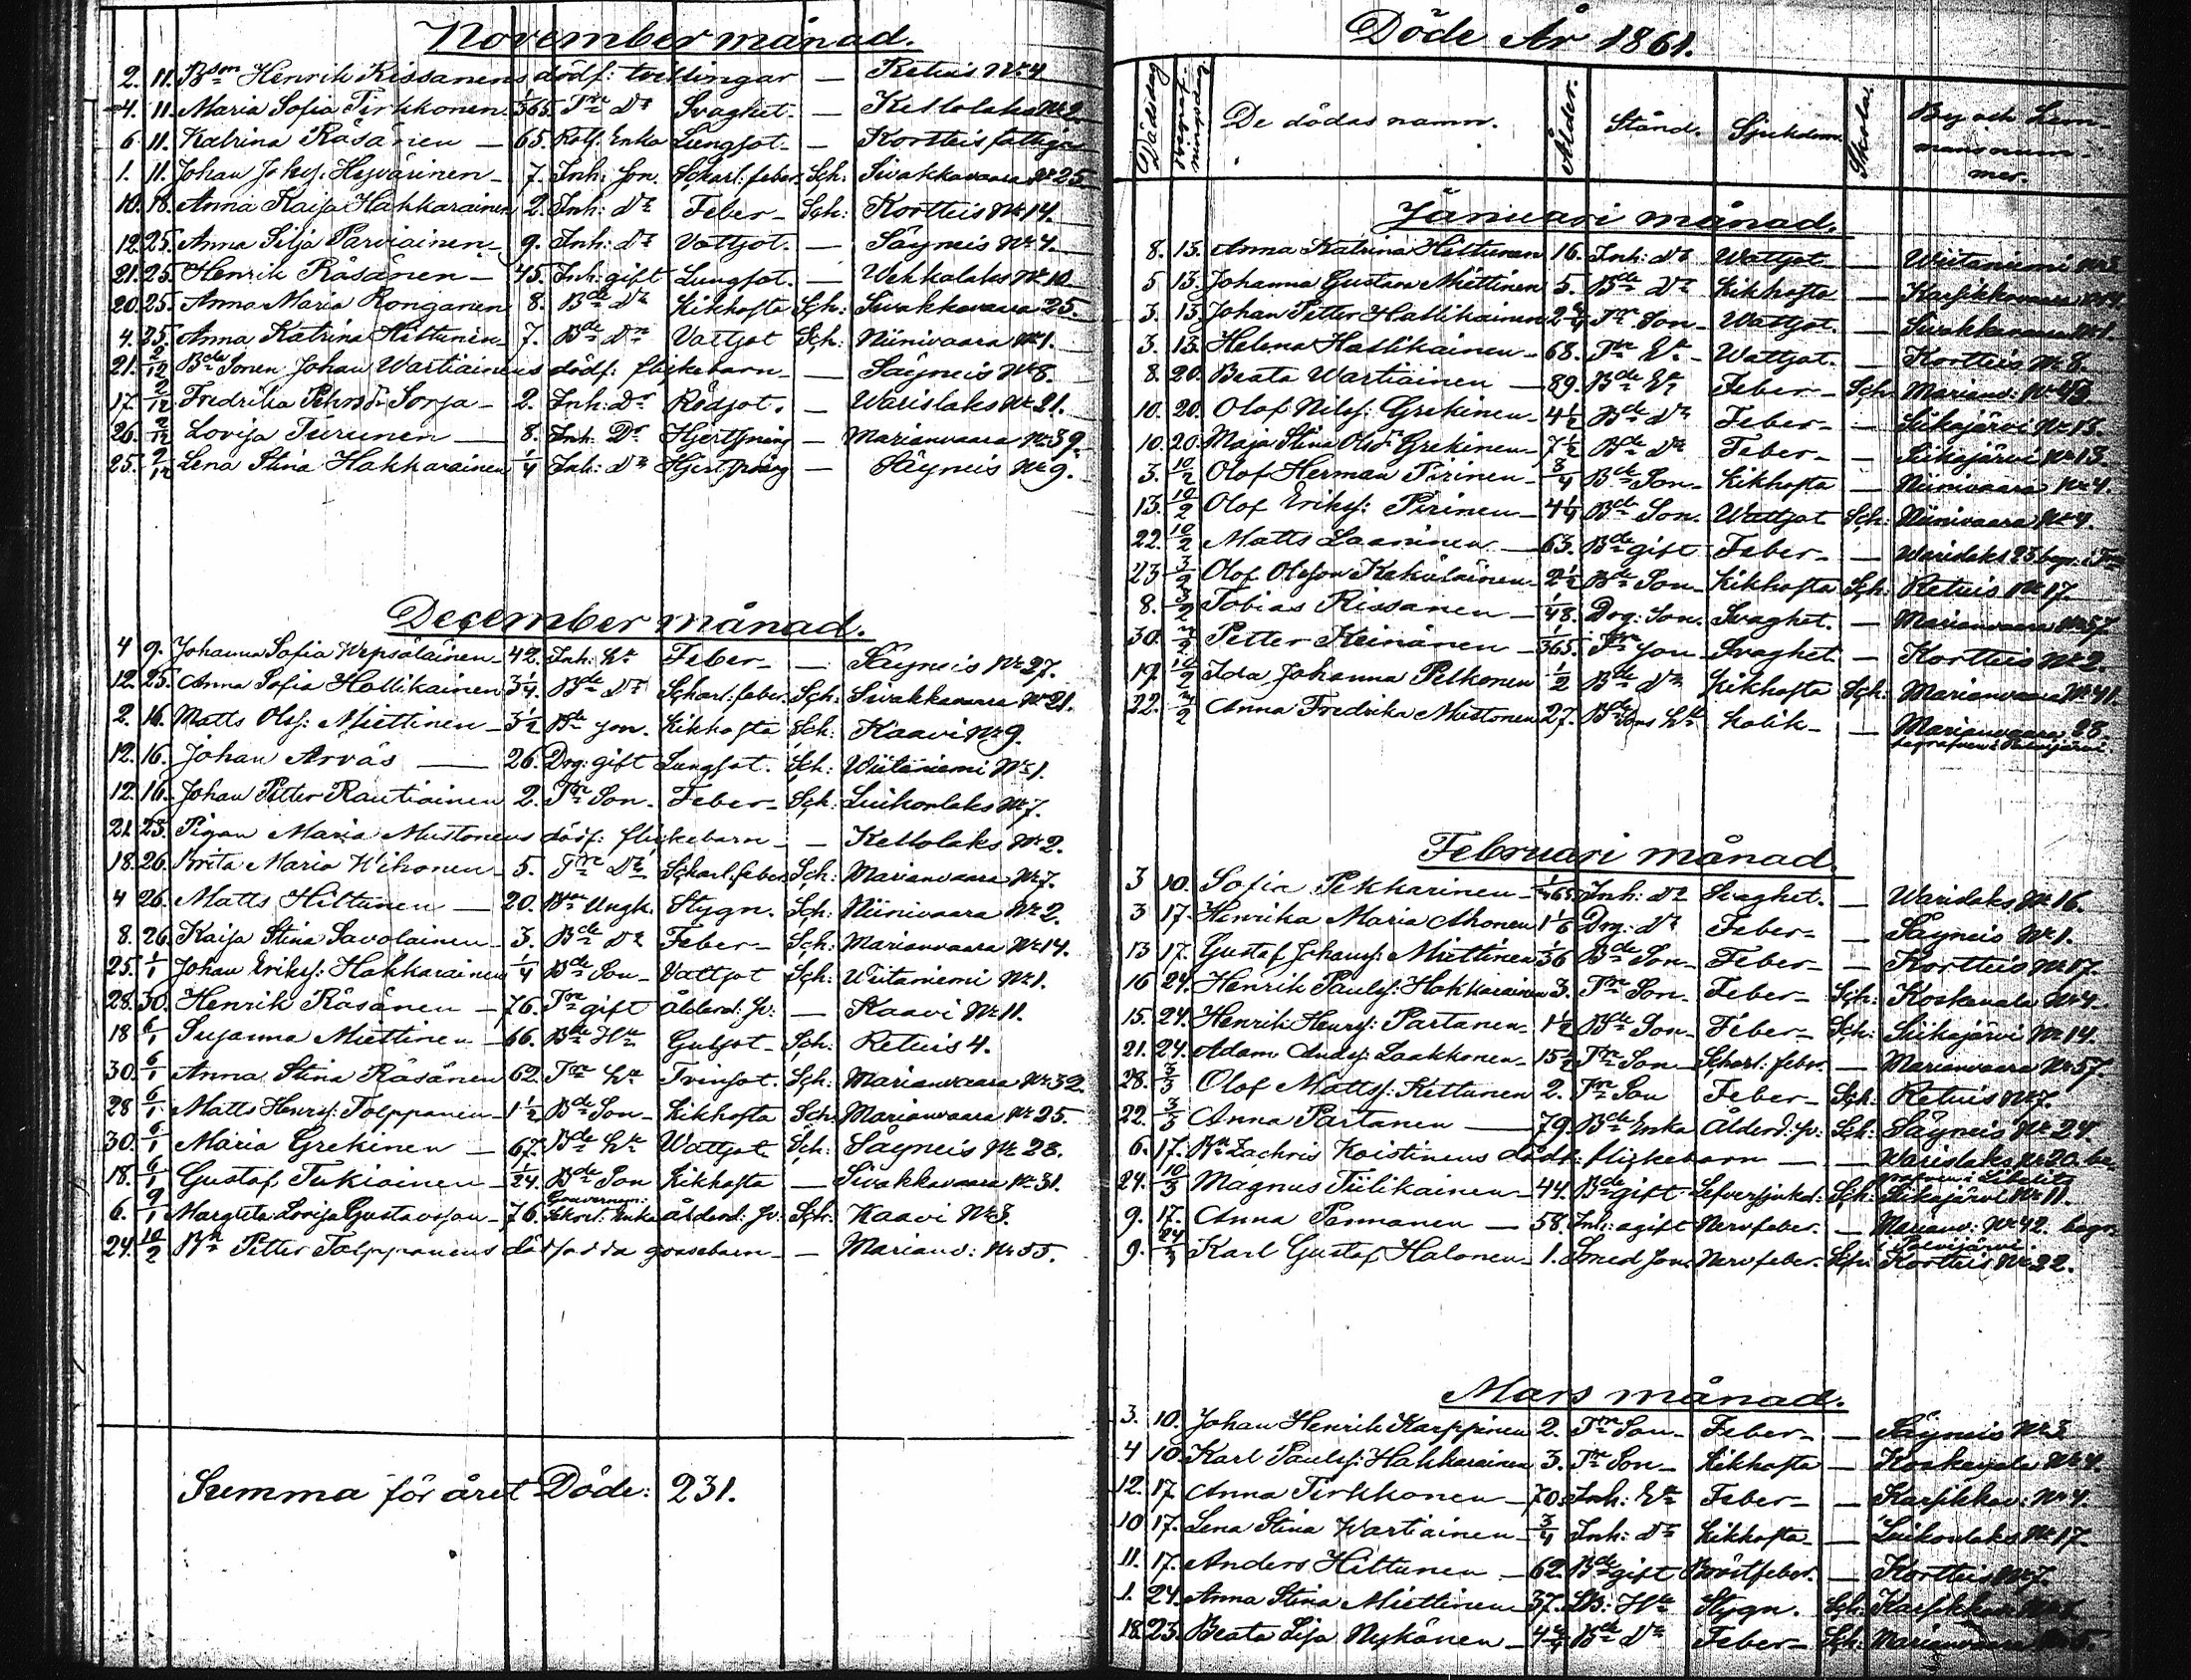 November månad.
2. 11. Bdesn Henrik Rissanens dödf: tvillingar — Retuis No 4
4. 11. Maria Sofia Tirkkonen 1/365. Trp Dr Svaghet. — Kellolaks No 2
6 11. Katrina Räsänen — 65. Rotf. Enka Lungsot. — Kortteis fattig
1. 11. Johan Johsf: Hyvärinen 7. Inh: Son. Scharl: feber Sch: Sivakkavaara No 25
10. 18. Anna Kaisa Hakkarainen 2. Inh: Dr Feber — Sch: Kortteis No 14.
12. 25. Anna Silja Parviainen 9. Inh: Dr Vattsot. — Säyneis No 4.
21. 25. Henrik Räsänen — 45. Inh: gift Lungsot. — Wehkalaks No 10
20. 25. Anna Maria Ronganen 8. Bde Dr Kikhosta Sch: Sivakkavaara 25.
4. 25. Anna Katrina Hiltunen 7. Bde Dr Vattsot Sch: Niinivaara No 1.
21. 2/12 Bde Sonen Johan Wartiainens dödf: flickebarn — — Säyneis No 8.
17. 2/12 Fredrika Sorsa — 2. Inh: Dr Rödsot. — Warislaks No 21.
26. 2/12 Lovisa Turunen — 8. Inh: Dr — Marianvaara No 39.
25. 2/12 Lena Stina Hakkarainen 1/4 Inh: Dr — Säyneis No 9.
December månad.
4 9. Johanna Sofia Wepsäläinen 42. Inh: Hu Feber — — Säyneis No 27.
12. 25. Anna Sofia Hallikainen 3 1/4. Bde Dr Scharl: feber Sch: Sivakkavaara No 21.
2. 16. Matts Olsf: Miettinen 3 1/2 Bde son. Kikhosta Sch: Kaavi No 9.
12. 16. Johan Arvās — 26. Drg: gift Lungsot. Sch: Wiitaniemi No 1.
12. 16. Johan Petter Rautiainen 2. Trp Son. Feber — Sch: Luikonlaks No 7.
21. 23. Pigan Maria Mustonens dödf: flickebarn — — Kellolaks No 2.
18. 26. Brita Maria Wihonen 5. Trp Dr Scharl. feber Sch: Marianvaara No 7.
4 26. Matts Hiltunen — 20. Bde Ungk. Stygn. Sch: Niinivaara No 2.
8. 26. Kaisa Stina Savolainen 3. Bde Dr Feber — Sch: Marianvaara No 14.
25. 1/1 Johan Eriksf: Hakkarainen 1/4 Bde Son — Vattsot Sch: Wiitaniemi No 1.
28. 30. Henrik Räsänen — 76. Trp gift Ålderd: sv: — Kaavi No 11.
18 6/1 Susanna Miettinen — 66. Bde Hu Gulsot — Sch: Retuis 4.
30. 6/1 Anna Stina Räsänen 62. Trp Hu Tvinsot. Sch: Marianvaara No 32.
28 6/1 Matts Henrsf: Tolppanen 1 1/2 Bde Son — Kikhosta Sch. Marianvaara No 25.
30. 6/1 Maria Grekinen — 67. Bde Hu Wattsot Sch: Säyneis No 28.
18. 6/1 Gustaf Tukiainen — 1/24. Bde Son Kikhosta — Sivakkavaara No 31.
6. 9/1 Margreta Lovisa Gustavsson 76. Gouvernem: Sekret: Enka Ålderd: sv: Sch: Kaavi No 3.
24. 10/2 Bde Petter Tolppanens dödfödda gossebarn — — Marianv: No 55.
Summa för året Döde: 231.
Döde År 1861.
Dödsdag
De dödas namn. Ålder. Stånd. Sjukdom. Skola. By och Hemmans nummer.
Januari månad.
8. 13. Anna Katrina Hiltunen 16. Inh: Dr Wattsot — Wiitaniemi No 3
5 13. Johanna Gustava Miettinen 5. Bde Dr Kikhosta — Karsikkovaara No 4.
3. 13. Johan Petter Hallikainen 2 3/4 Trp Son — Wattsot. — Sivakkavaara No 1.
3. 13. Helena Hallikainen — 68. Trp Ea — Wattsot. — Kortteis No 8.
8. 20. Beata Wartiainen — 89. Bde Ea Feber — Sch: Marianv: No 43
10. 20. Olof Nilsf: Grekinen 4 1/2 Bde Dr Feber — — Siikajärvi No 13.
10. 20. Maja Stina Olsdr Grekinen 7 1/2 Bde Dr Feber — — Siikajärvi No 13.
3. 10/2 Olof Herman Pirinen 3/4 Bde Son — Kikhosta — Niinivaara No 4.
13. 10/2 Olof Eriksf: Pirinen 4 1/4 Bde Son. Wattsot Sch: Niinivaara No 4.
22. 10/2 Matts Laaninen — 63. Bde gift Feber — — Warislaks 23 begr. i
23 3/2 Olof Olofsson Kekäläinen 2 1/2 Bde Son — Kikhosta Sch: Retuis No 17
8. 3/2 Tobias Rissanen — 1/48. Drg: Son. Svaghet. — Marianvaara No 57.
30. 3/2 Petter Heinänen — 1/365. Trp son Svaghet — Kortteis No 2.
19. 10/2 Ida Johanna Pelkonen 1/2 Bde Dr Kikhosta Sch: Marianvaara No 41.
22. 3/2 Anna Fredrika Mustonen 27. Bde Sons Hu Kolik — — Marianvaara 28.
begrafven i Polvijärvi
Februari månad.
3 10. Sofia Pekkarinen 1/365 Inh: Dr Svaghet. — Warislaks No 16.
3 17. Henrika Maria Ahonen 1 1/6 Drg: Dr Feber — — Säyneis No 1.
13 17. Gustaf Johansf: Miettinen 1/36 Bde Son — Feber — — Kortteis No 17
16 24. Henrik Paulsf: Hakkarainen 3. Trp Son. Feber — Sch: Koskenala No 4.
15. 24. Henrik Henrsf: Partanen 1 1/2 Bde Son — Feber — Sch: Siikajärvi No 14.
21. 24. Adam Andsf: Laakkonen 15 1/2 Trp Son Scharl: feber. — Marianvaara No 57.
28. 3/3 Olof Mattsf: Kettunen 2. Trp Son Feber — Sch: Retuis No 7.
22. 3/3 Anna Partanen — 79. Bde Enka Ålderd: sv: Sch: Säyneis No 24.
6. 17. Bde Zachris Koistinens dödf: flickebarn — — Warislaks No 20. be-
grafven i Libelits
24. 10/3 Magnus Tiilikainen 44. Bde gift Lefversjukd: Sch: Siikajärvi No 11.
9. 17. Anna Pannanen — 58. Inh: ogift Nervfeber. — Marianv: No 42. begr.
i Polvijärvi.
9. 24/3 Karl Gustaf Halonen 1. Smed Son. Nervfeber. Sch: Kortteis No 22.
Mars månad.
3. 10. Johan Henrik Karppinen 2. Trp Son — Feber — — Säyneis No 3
4 10. Karl Paulsf: Hakkarainen 3. Trp Son — Kikhosta — Koskenala No 4.
12. 17. Anna Tirkkonen — 70. Inh: Ea Feber — — Karsikkov: No 4.
10 17. Lena Stina Wartiainen 3/4 Inh: Dr Kikhosta — Luikonlaks No 17.
11. 17. Anders Hiltunen — 62. Bde gift Bröstfeber. — Kortteis No 7.
1. 24. Anna Stina Miettinen 37. Hu Stygn. Sch:
18. 23. Beata Lisa Nykänen Bde Dr Feber — Sch: Marianvaara